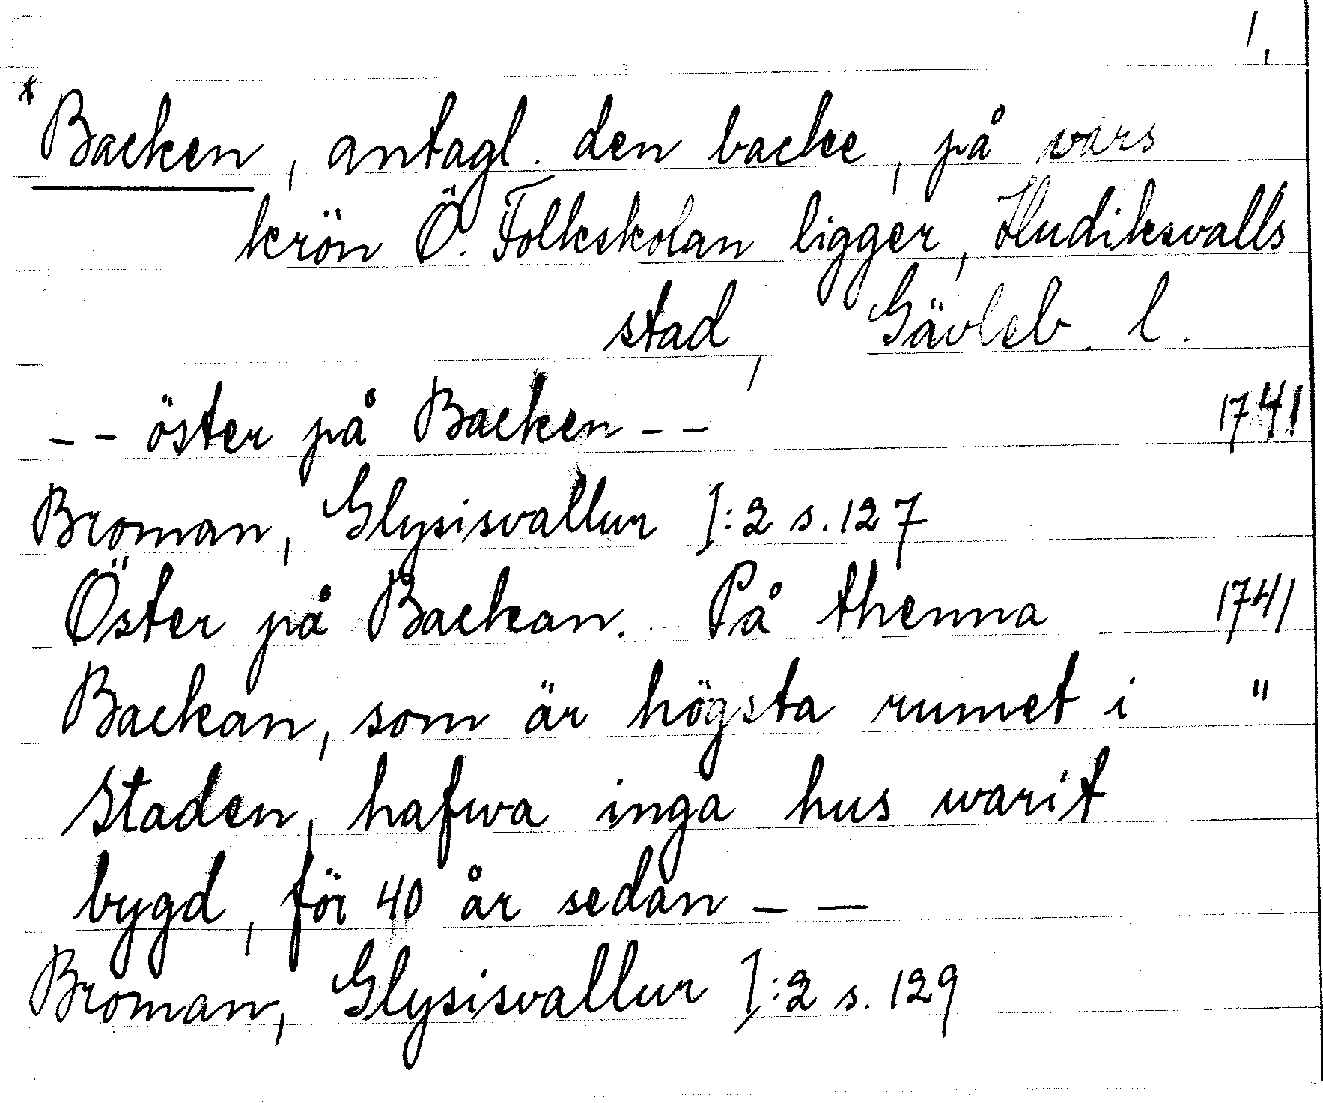 1.
*Backen, antagl. den backe, på vars
krön Ö. Folkskolan ligger, Hudiksvalls
stad, Gävleb. l.
-- öster på Backen -- 1741
Broman, Glysisvallur I:2 s. 127
Öster på Backan. På thenna 1741
Backan, som är högsta rumet i "
Staden, hafwa inga hus warit
bygd, för 40 år sedan --
Broman, Glysisvallur I:2 s. 129